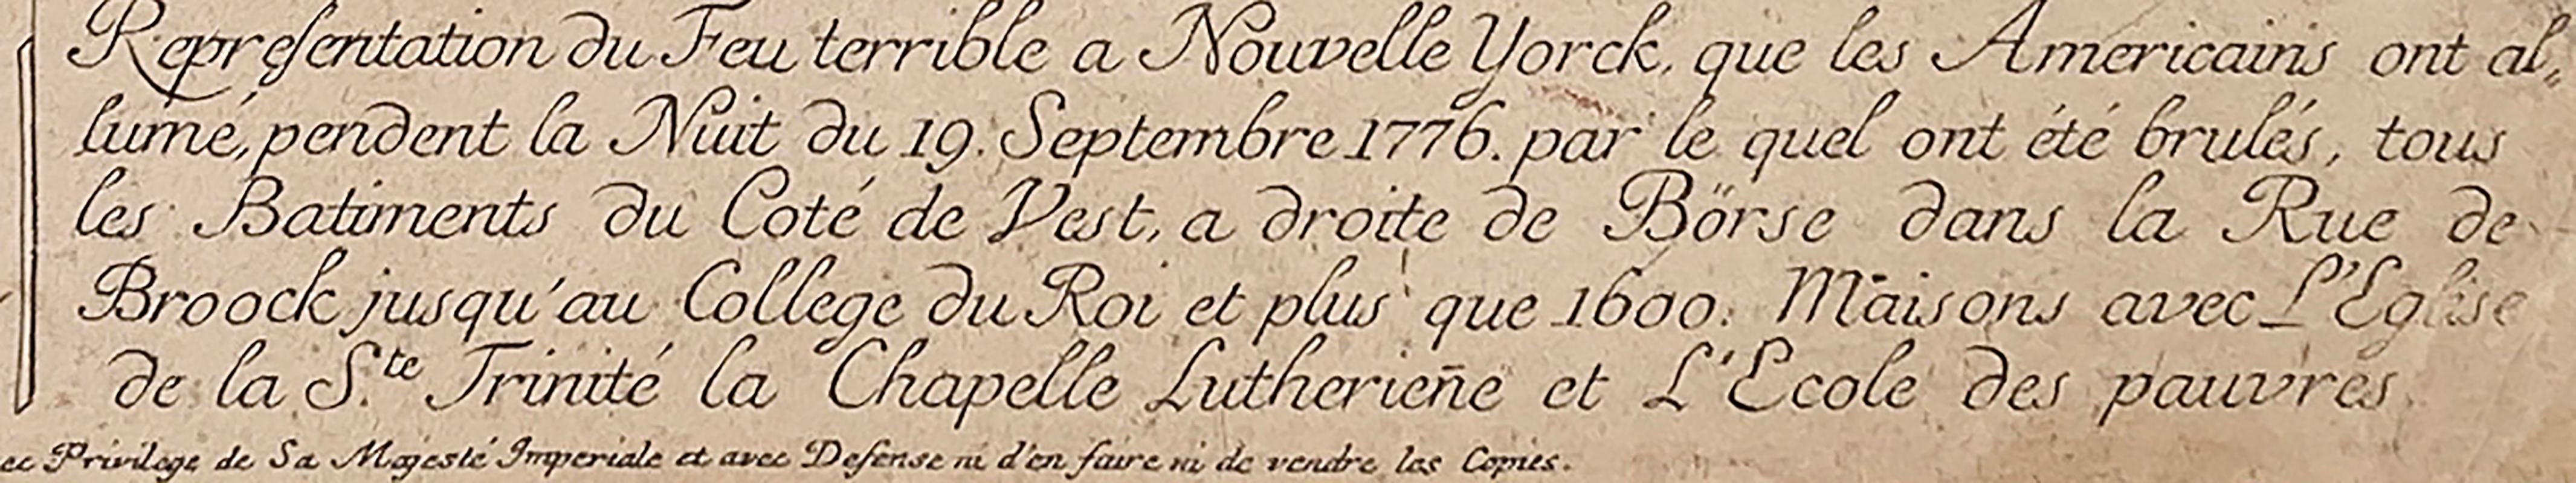 Representation du Feu terrible a Nouvelle Yorck, que les Americains ont al„
lumé, pendent la Nuit du 19. Septembre 1776. par le quel ont été brulés, tous
les Batiments du Coté de Vest, a droite de Börse dans la Rue de
Broock jusqu'au College du Roi et plus que 1600. Maisons avec L'Eglise
de la S.te Trinité la Chapelle Lutherien̄e et L'Ecole des pauvres
ec Privilege de Sa Majesté Imperiale et avec Defense ni d'en faire ni de vendre les Copies.